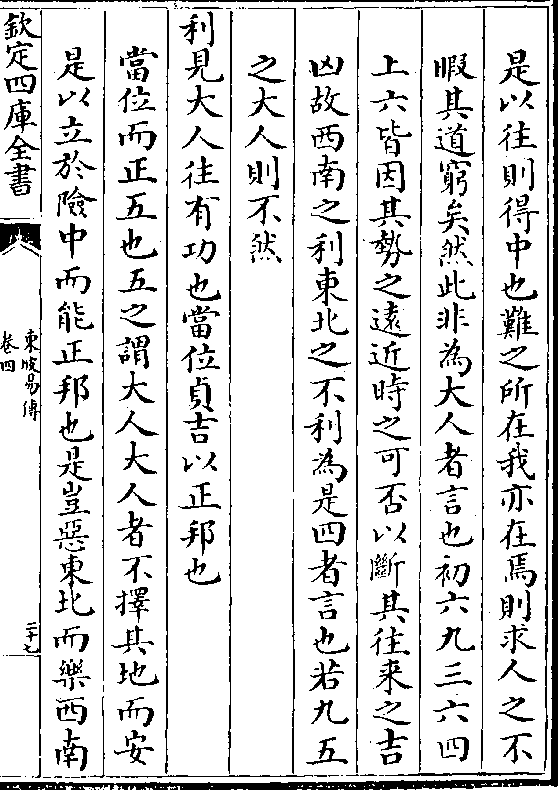 是以往則得中也難之所在我亦在焉則求人之不
暇其道窮矣然此非為大人者言也初六九三六四
上六皆因其勢之遠近時之可否以斷其往来之吉
凶故西南之利東北之不利為是四者言也若九五
之大人則不然
利見大人往有功也當位貞吉以正邦也
當位而正五也五之謂大人大人者不擇其地而安
是以立於險中而能正邦也是豈惡東北而樂西南
欽定四庫全書
東坡易傳
卷四
二十七